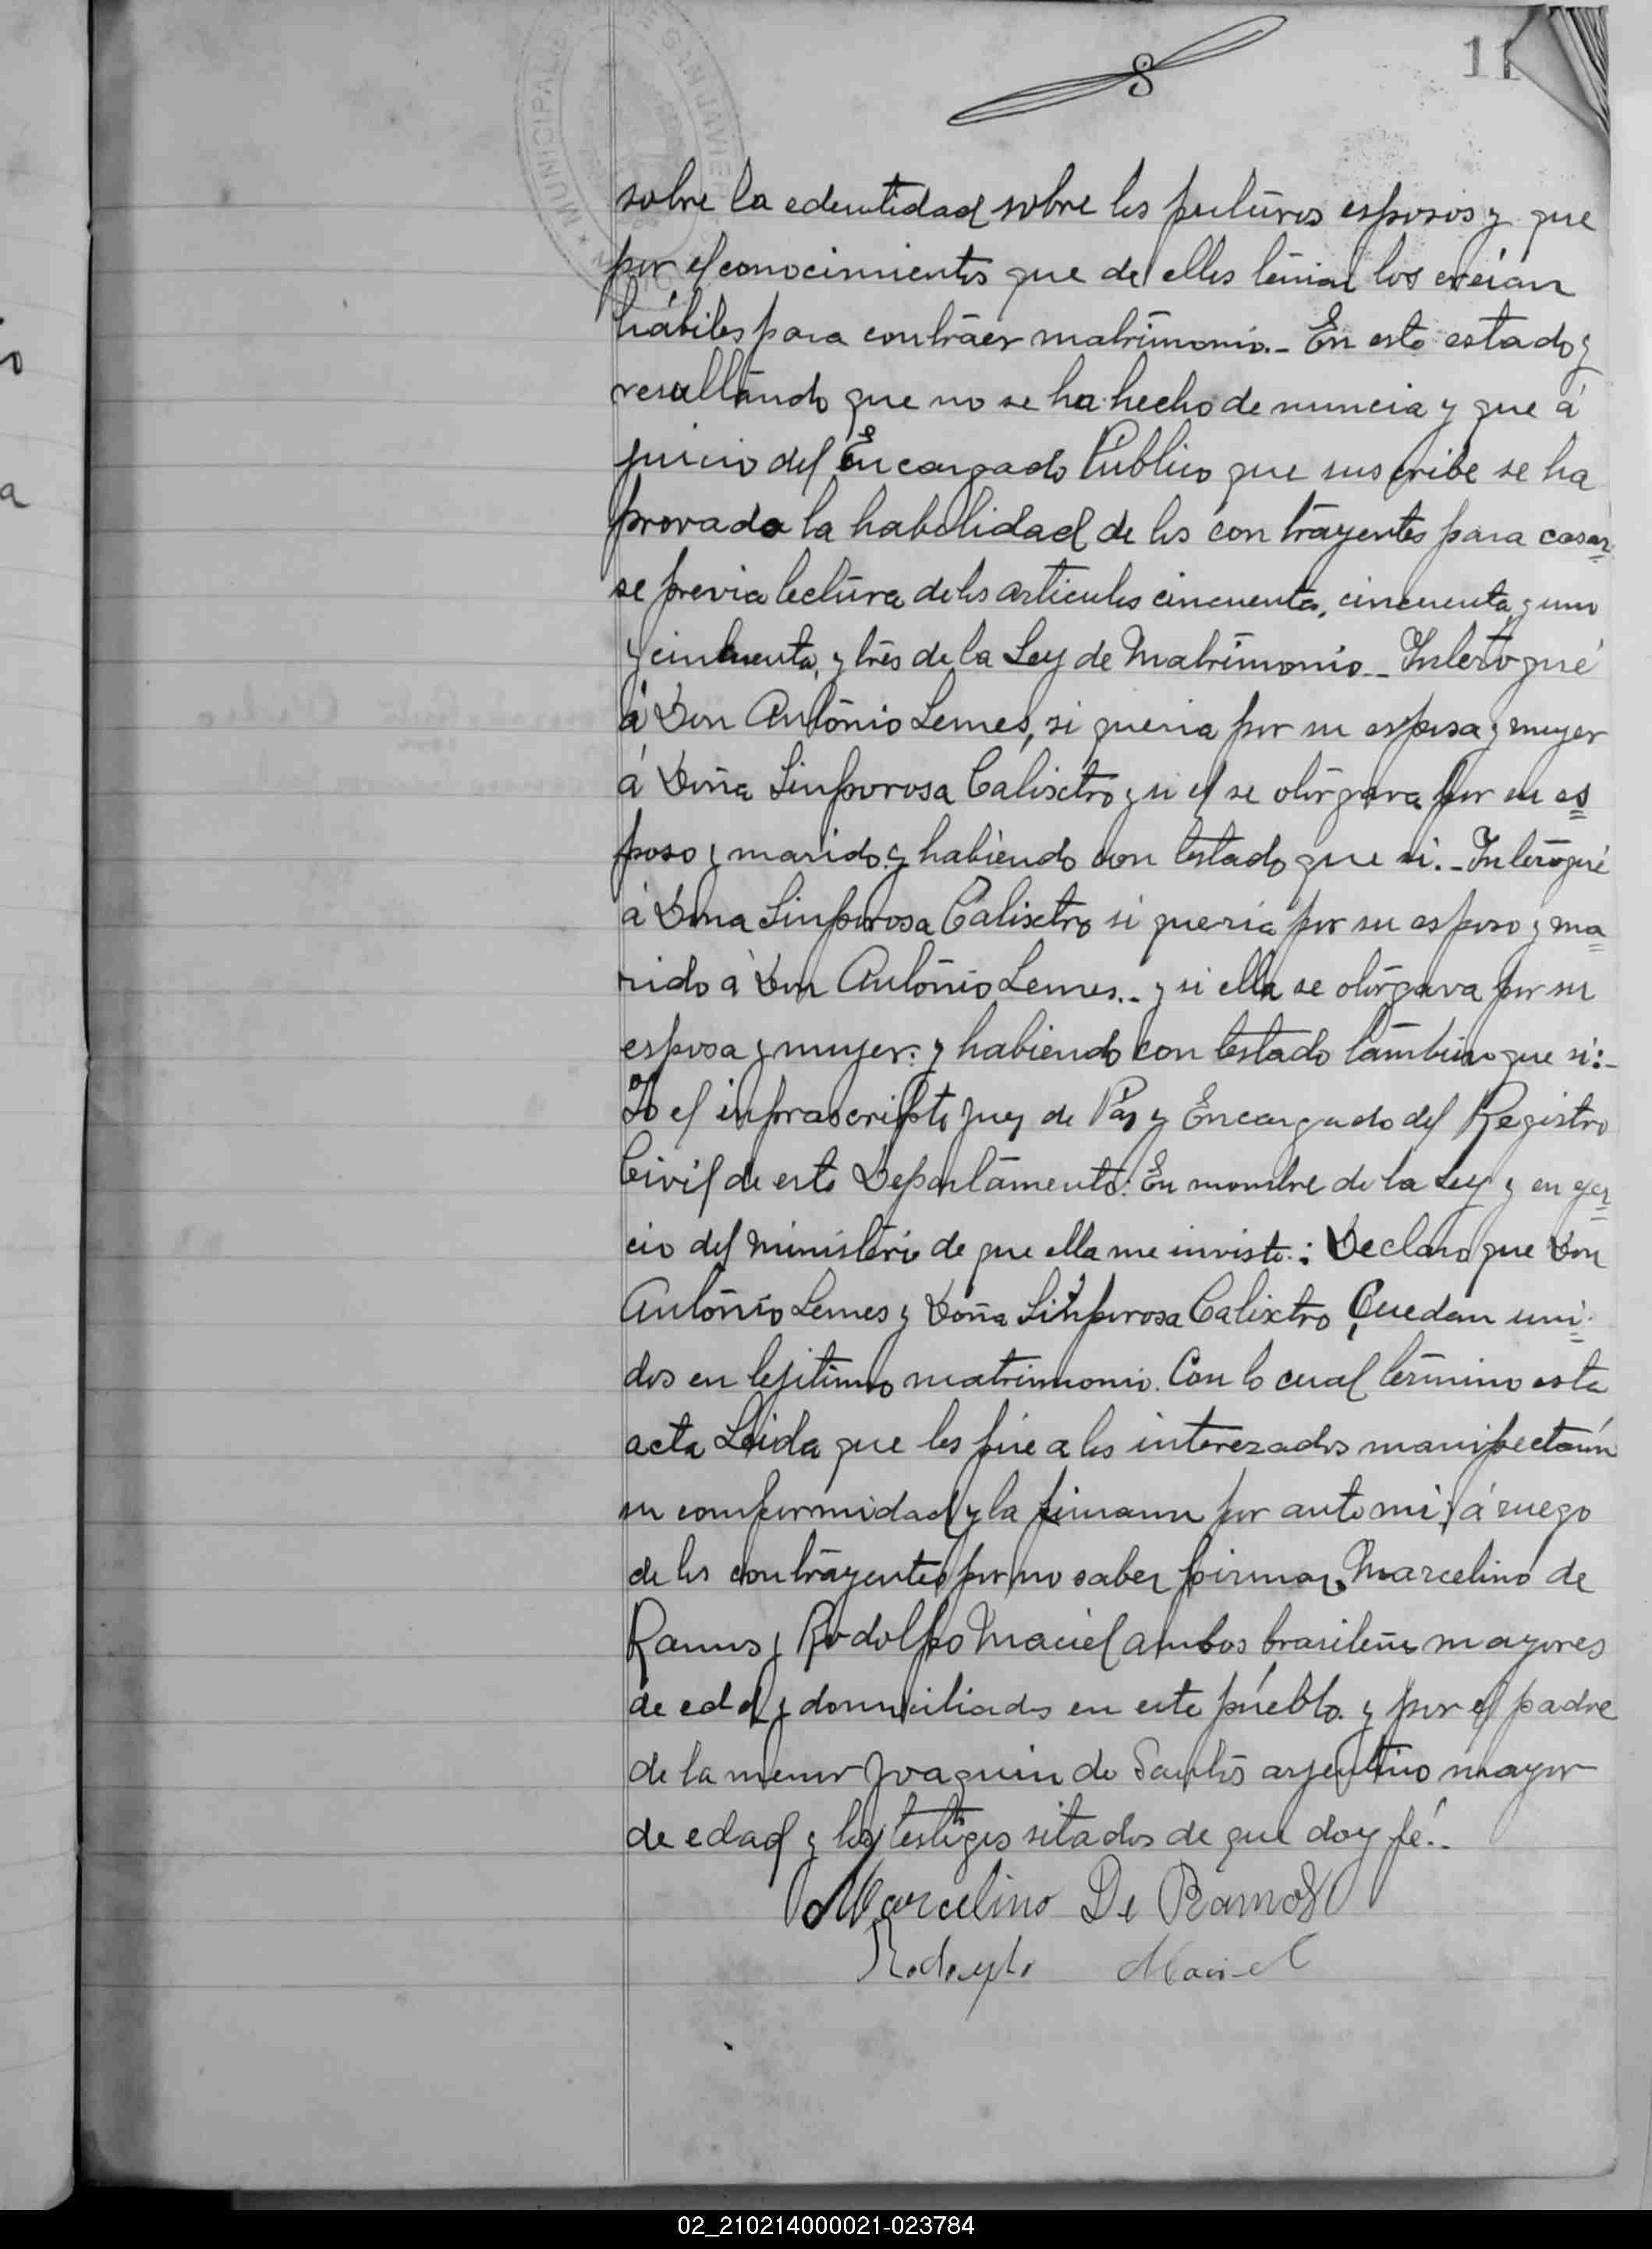 11
MUNICIPALIDAD DE SAN JAVIER
sobre la edentidad sobre los futuros esposos y que
por el conocimientos que de ellos tenian los creian
hábiles para contraer matrimonio.- En este estado y
resultando que no se ha hecho denuncia y que á
juicio del Encargado Público que suscribe se ha
provado la habilidad de los contrayentes para casar=
se previa lectura de los articulos cincuenta, cincuenta y uno
y cincuenta y tres de la Ley de Matrimonio.- Interogué
á Don António Lemes, si queria por su esposa y muger
á Doña Sinforosa Calixtro y si el se otorgava por su es=
poso y marido y habiendo contestado que si.- Interogué
á Dona Sinforosa Calixtro si queria por su esposo y ma=
rido a Don António Lemes.- y si ella se otorgava por su
esposa y mujer: y habiendo contestado tambien que si:-
Yo el infrascripto Juez de Paz y Encargado del Registro
Civil de este Departamento: En nombre de la Ley y en ejer=
cio del ministerio de que ella me inviste: Declaro que Don
António Lemes y Doña Sinforosa Calixtro Quedan uni=
dos en lejitimo matrimonio. Con lo cual término esta
acta Leida que les fué a los interezados manifectarón
su comformidad y la firmarón por ante mi; á ruego
de los contrayentes por no saber firmar, Marcelino de
Ramos y Rodolfo Maciel ambos brasileños mayores
de edad y domiciliados en este pueblo y por el padre
de la menor Joaquin de Santos arjentino mayor
de edad y los testigos sitados de que doy fé.-
Marcelino De Ramos
Rodolfo Maciel
02_210214000021-023784